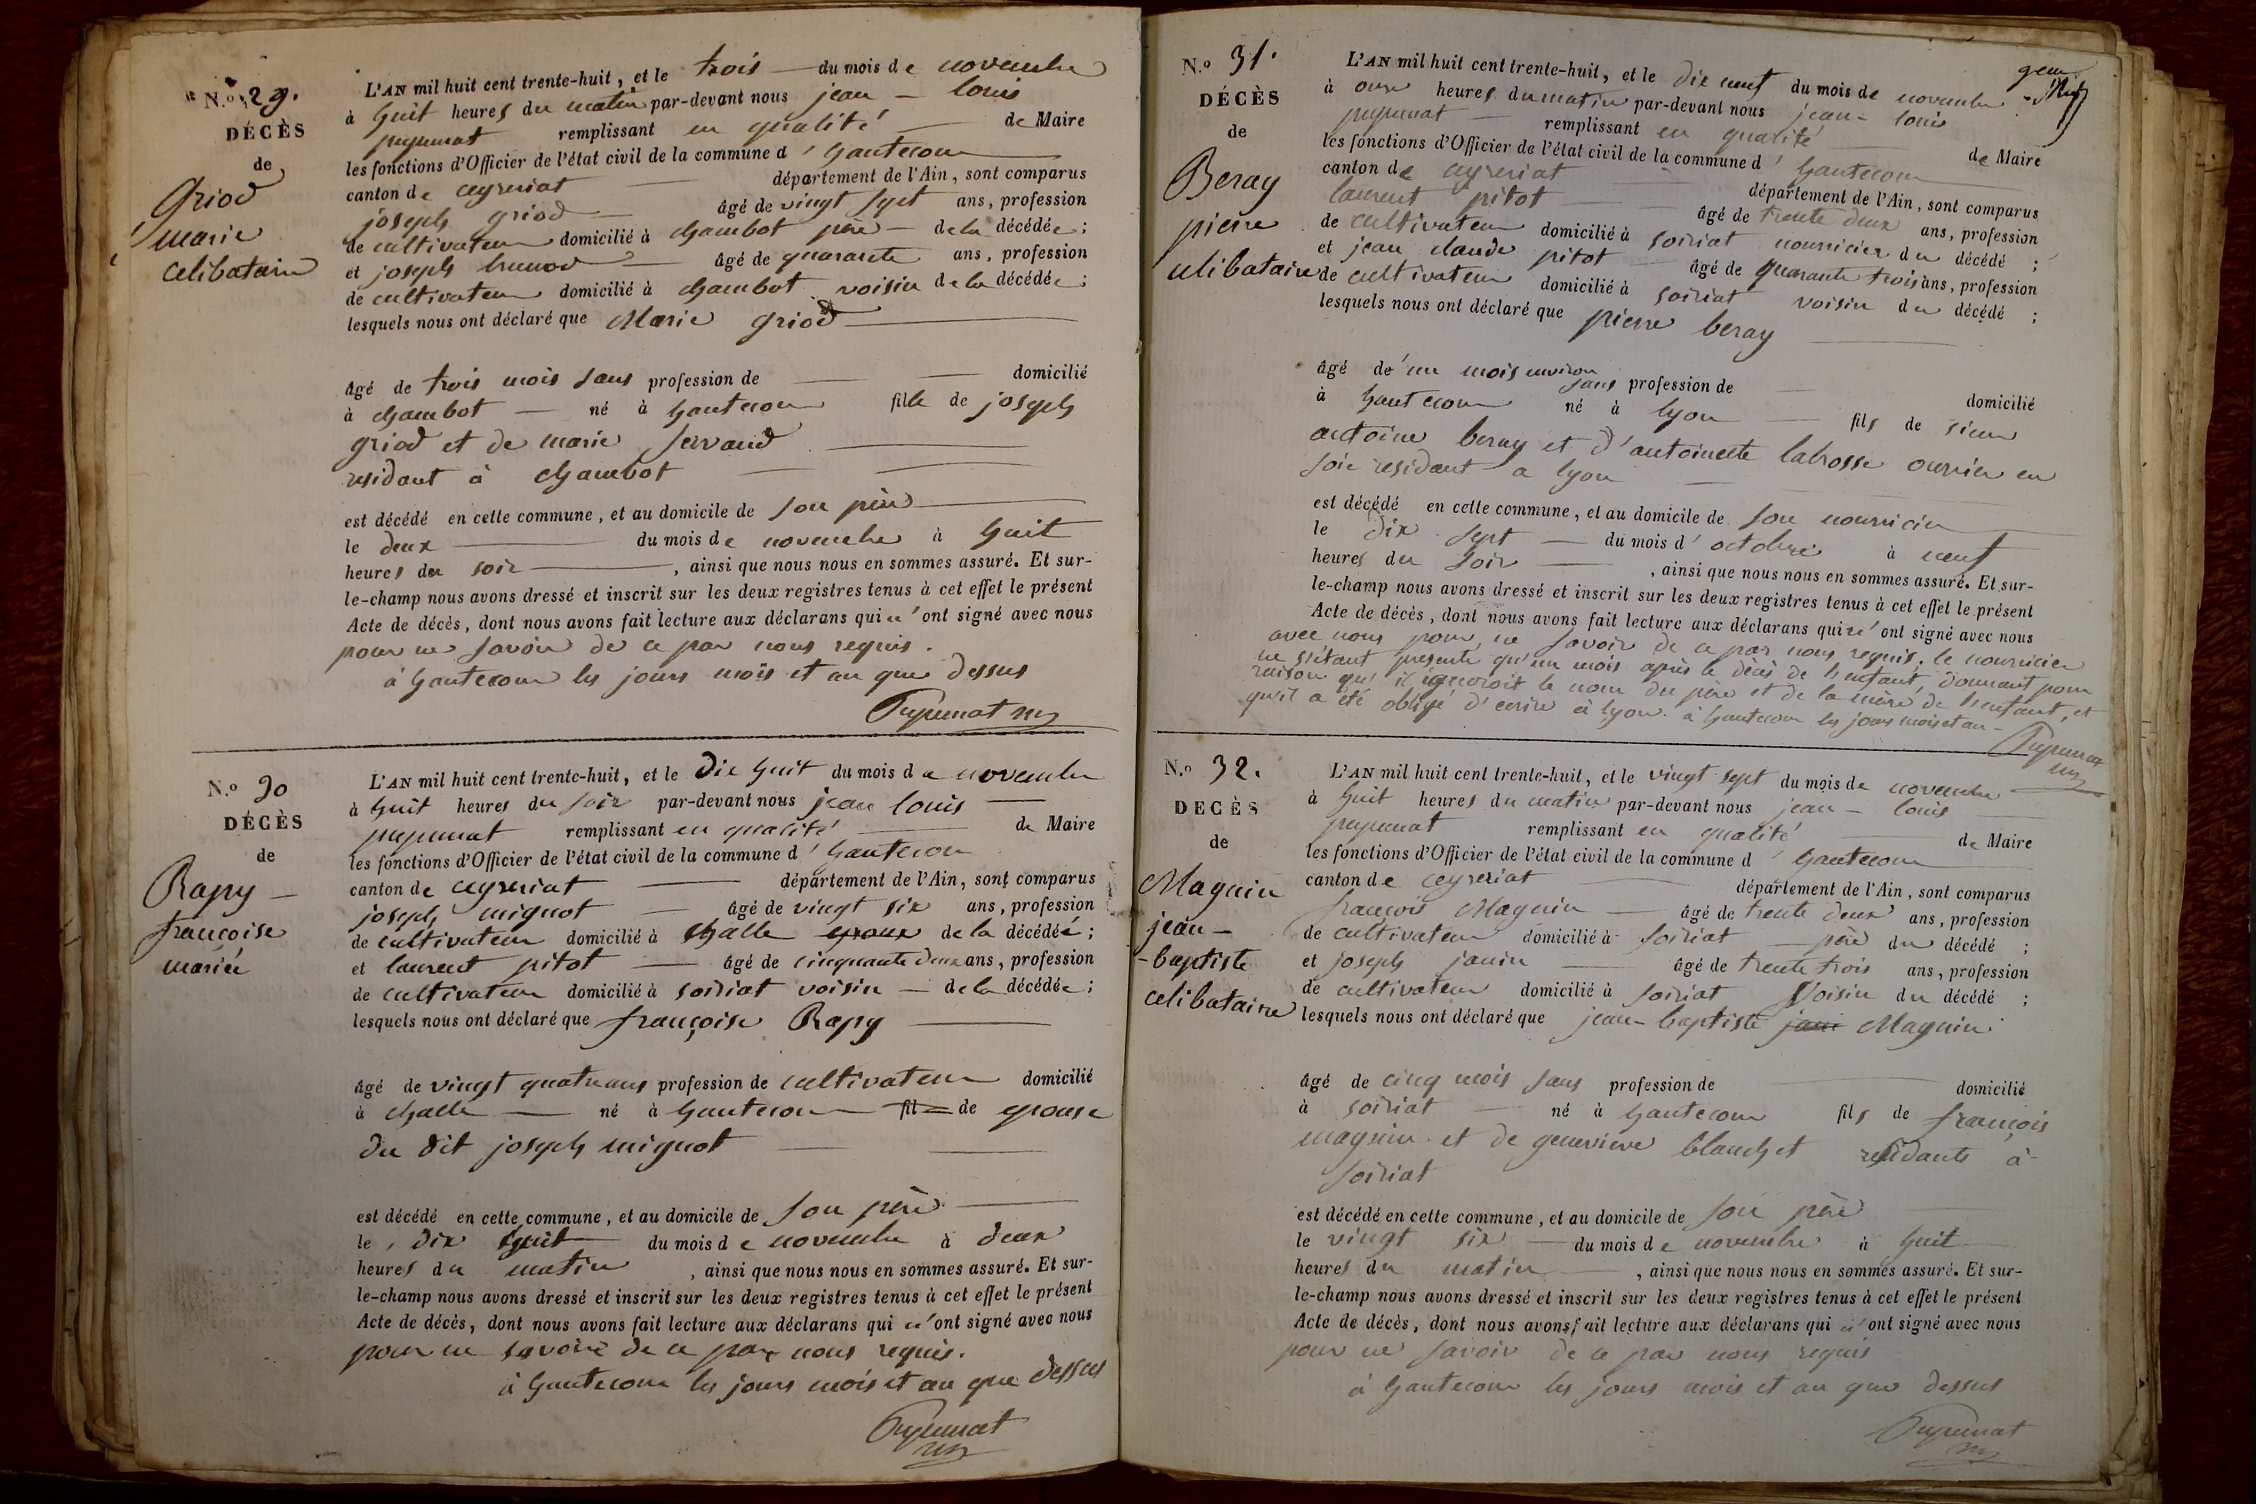 N.º 29.
DÉCÈS
de
Griod
marie
celibataire
L'AN mil huit cent trente-huit, et le trois du mois de novembre
à huit heures du matin par-devant nous jean - louis
pupunat remplissant en qualité de Maire
les fonctions d'Officier de l'état civil de la commune d'hautecour
canton de ceyzeriat département de l'Ain, sont comparus
joseph griod âgé de vingt sept ans, profession
de cultivateur domicilié à chambot père de la décédée;
et joseph brunod âgé de quarante ans, profession
de cultivateur domicilié à chambot voisin de la décédée;
lesquels nous ont déclaré que Marie griod
âgé de trois mois sans profession de domicilié
à chambot né à hautecour fille de joseph
griod et de marie servand
residant à chambot
est décédé en cette commune, et au domicile de son père
le deux du mois de novembre à huit
heures du soir, ainsi que nous nous en sommes assuré. Et sur-
le-champ nous avons dressé et inscrit sur les deux registres tenus à cet effet le présent
Acte de décès, dont nous avons fait lecture aux déclarans qui n'ont signé avec nous
pour ne savoir de ce par nous requis.
à hautecour les jours mois et an que dessus
Pupunat
N.º 30
DÉCÈS
de
Rapy
francoise
mariée
L'AN mil huit cent trente-huit, et le dix huit du mois de novembre
à huit heures du soir par-devant nous jean louis
pupunat remplissant en qualité de Maire
les fonctions d'Officier de l'état civil de la commune d'hautecour
canton de ceyzeriat département de l'Ain, sont comparus
joseph mignot âgé de vingt six ans, profession
de cultivateur domicilié à challe epoux de la décédée;
et laurent pitot âgé de cinquante deux ans, profession
de cultivateur domicilié à soiriat voisin de la décédée;
lesquels nous ont déclaré que françoise Rapy
âgé de vingt quatre ans profession de cultivateur domicilié
à challe né à hautecour fil de epouse
du dit joseph mignot
est décédé en cette commune, et au domicile de son père
le dix huit du mois de novembre à deux
heures du matin, ainsi que nous nous en sommes assuré. Et sur-
le-champ nous avons dressé et inscrit sur les deux registres tenus à cet effet le présent
Acte de décès, dont nous avons fait lecture aux déclarans qui n'ont signé avec nous
pour ne savoir de ce par nous requis.
à hautecour les jours mois et an que dessus
Pupunat
N.º 31.
DÉCÈS
de
Beray
pierre
celibataire
L'AN mil huit cent trente-huit, et le dix neuf du mois de novembre
à onze heures du matin par-devant nous jean - louis
pupunat remplissant en qualité de Maire
les fonctions d'Officier de l'état civil de la commune d'hautecour
canton de ceyzeriat département de l'Ain, sont comparus
laurent pitot âgé de trente deux ans, profession
de cultivateur domicilié à soiriat nourricier du décédé;
et jean claude pitot âgé de quarante trois ans, profession
de cultivateur domicilié à soiriat voisin du décédé;
lesquels nous ont déclaré que pierre beray
âgé d'un mois environ sans profession de domicilié
à hautecour né à lyon fils de sieur
antoine beray et d'antoinette labrosse ouvrier en
soie residant a lyon
est décédé en cette commune, et au domicile de son nourricier
le dix sept du mois d'octobre à neuf
heures du soir, ainsi que nous nous en sommes assuré. Et sur-
le-champ nous avons dressé et inscrit sur les deux registres tenus à cet effet le présent
Acte de décès, dont nous avons fait lecture aux déclarans qui n'ont signé avec nous
avec nous pour ne savoir de ce par nous requis. le nourricier
ne s'étant presenté qu'un mois après le décès de l'enfant, donnant pour
raison qu'il ignoroit le nom du père et de la mère de l'enfant, et
qu'il a été obligé d'ecrire à lyon. à hautecour les jours mois et an
Pupunat
N.º 32.
DÉCÈS
de
Magnin
jean -
-baptiste
celibataire
L'AN mil huit cent trente-huit, et le vingt sept du mois de novembre
à huit heures du matin par-devant nous jean - louis
pupunat remplissant en qualité de Maire
les fonctions d'Officier de l'état civil de la commune d'hautecour
canton de ceyzeriat département de l'Ain, sont comparus
françois Magnin âgé de trente deux ans, profession
de cultivateur domicilié à soiriat père du décédé;
et joseph janin âgé de trente trois ans, profession
de cultivateur domicilié à soiriat voisin du décédé;
lesquels nous ont déclaré que jean-baptiste Magnin
âgé de cinq mois sans profession de domicilié
à soiriat né à hautecour fils de françois
magnin et de genevieve blanchet residants à
soiriat
est décédé en cette commune, et au domicile de son père
le vingt six du mois de novembre à huit
heures du matin, ainsi que nous nous en sommes assuré. Et sur-
le-champ nous avons dressé et inscrit sur les deux registres tenus à cet effet le présent
Acte de décès, dont nous avons fait lecture aux déclarans qui n'ont signé avec nous
pour ne savoir de ce par nous requis
à hautecour les jours mois et an que dessus
Pupunat